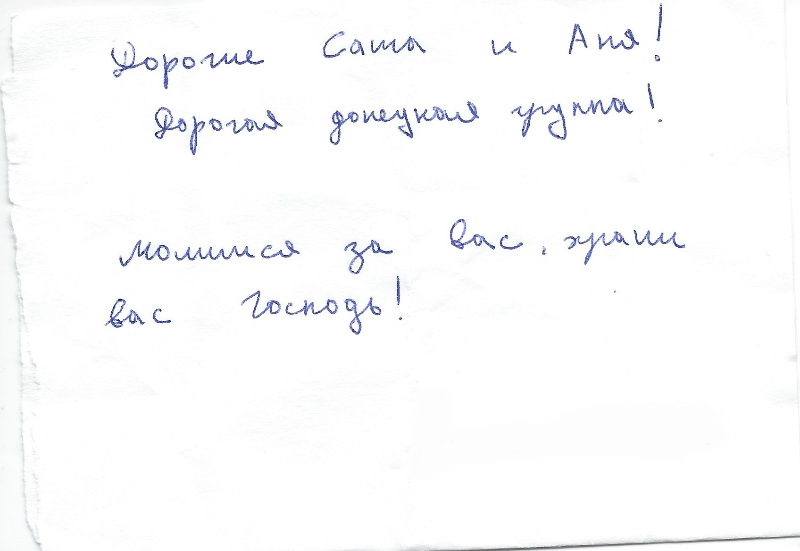 Дорогие Саша и Аня!
Дорогая донецкая группа!
Молимся за вас, храни
вас Господь!